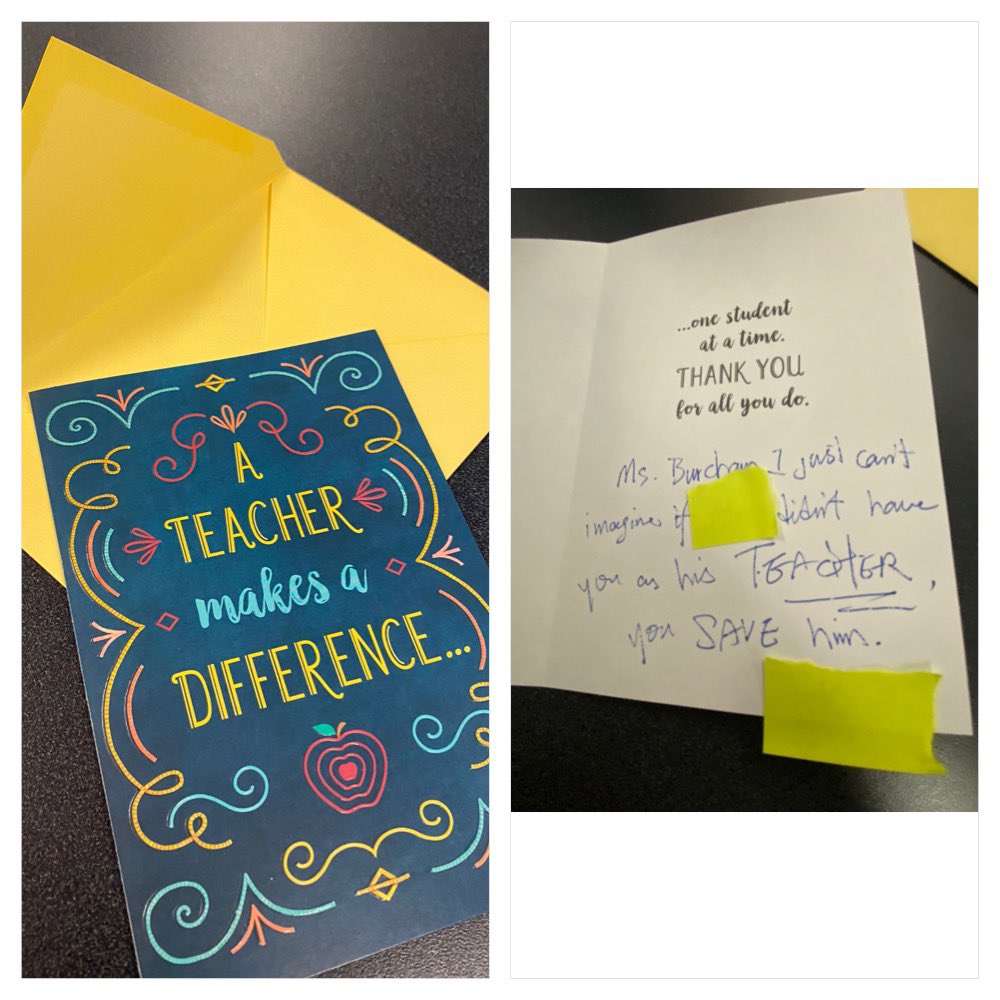 A
TEACHER
makes a
DIFFERENCE...
...one student
at a time.
THANK YOU
for all you do.
Ms. Burcham I just can't
imagine if didn't have
you as his TEACHER,
you SAVE him.